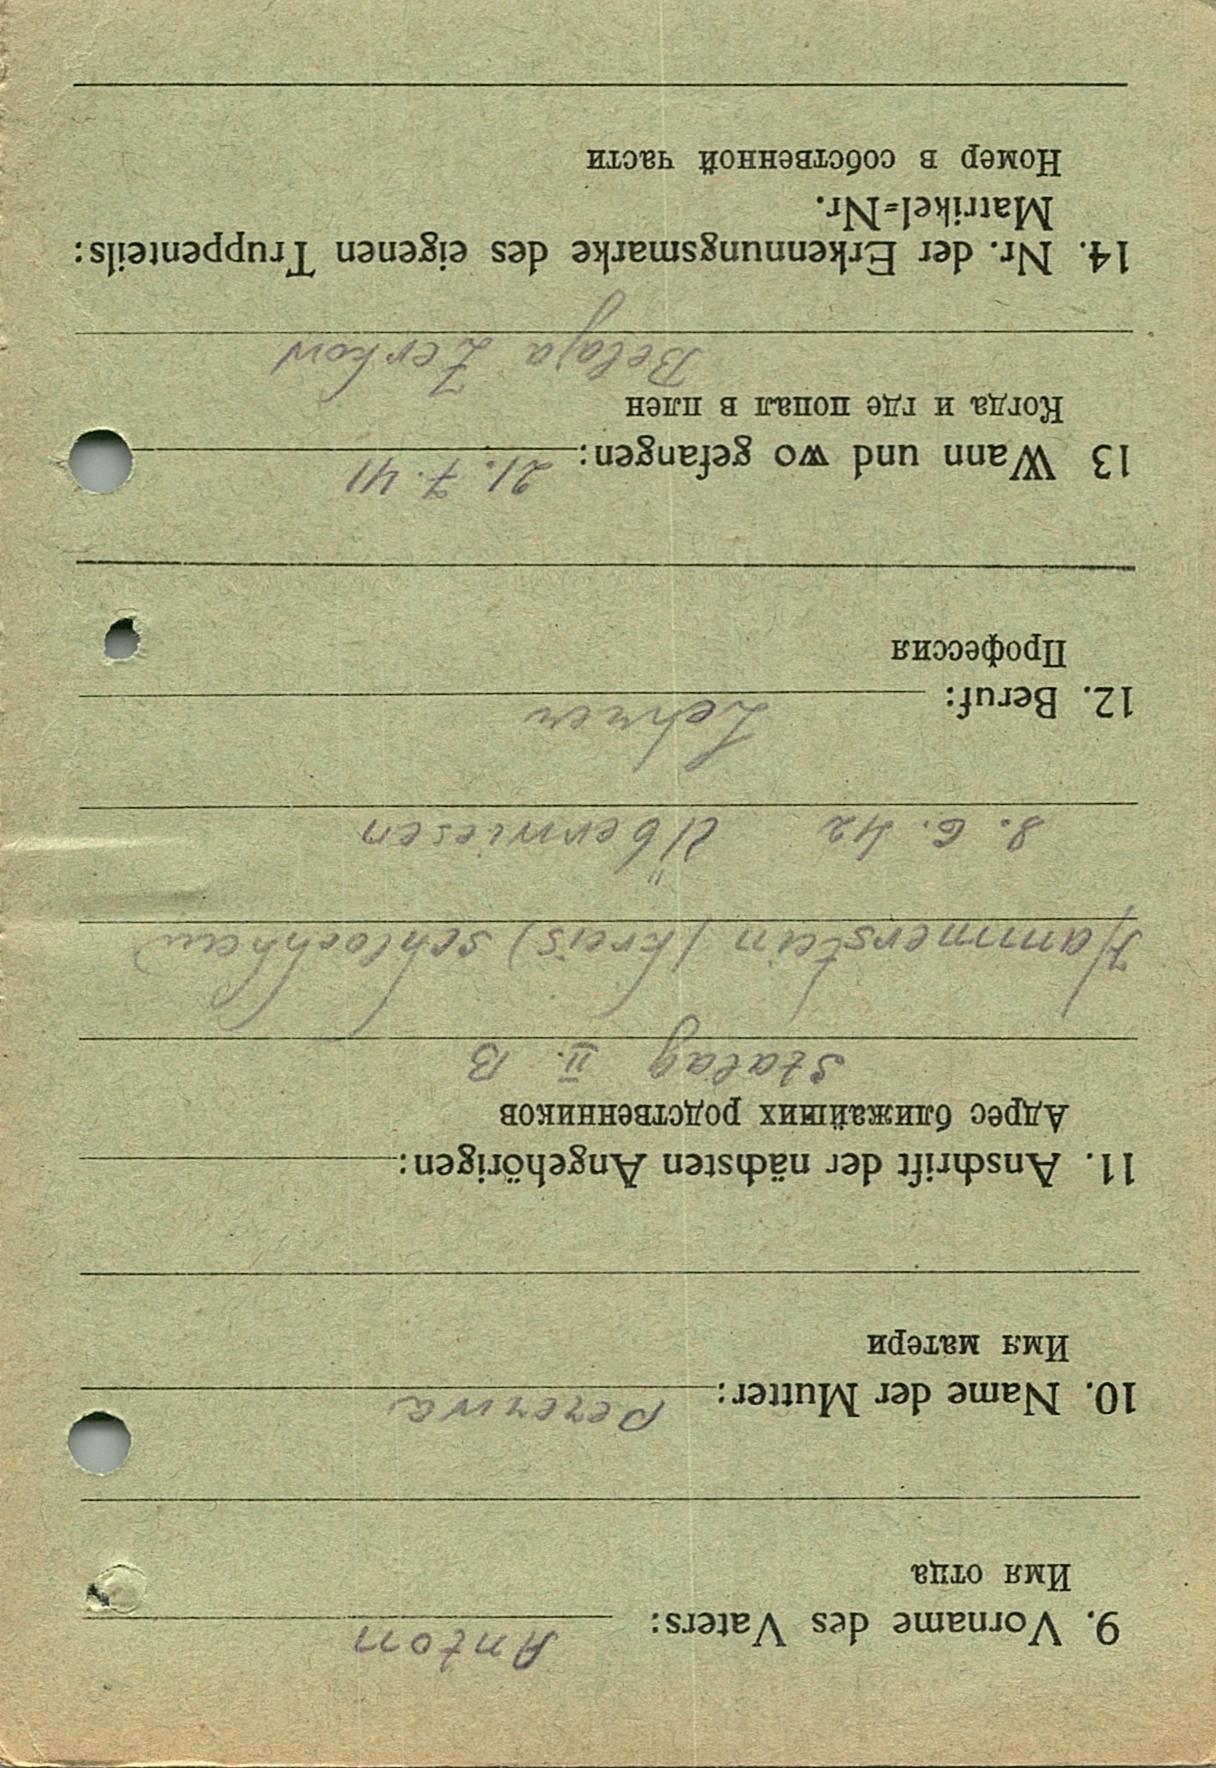 9. Vorname des Vaters: Anton
Имя отца
10. Name der Mutter: Pererwa
Имя матери
11. Anschrift der nächsten Angehörigen:
Адрес ближайших родственников
Stalag II. B
Hammerstein (kreis) schlochhau
8. 6. 42 Überwiesen
12. Beruf: Lehrer
Профессия
13 Wann und wo gefangen: 21. 7. 41
Когда и где попал в плен
Belaja Zerkow
14. Nr. der Erkennungsmarke des eigenen Truppenteils:
Matrikel=Nr.
Номер в собственной части